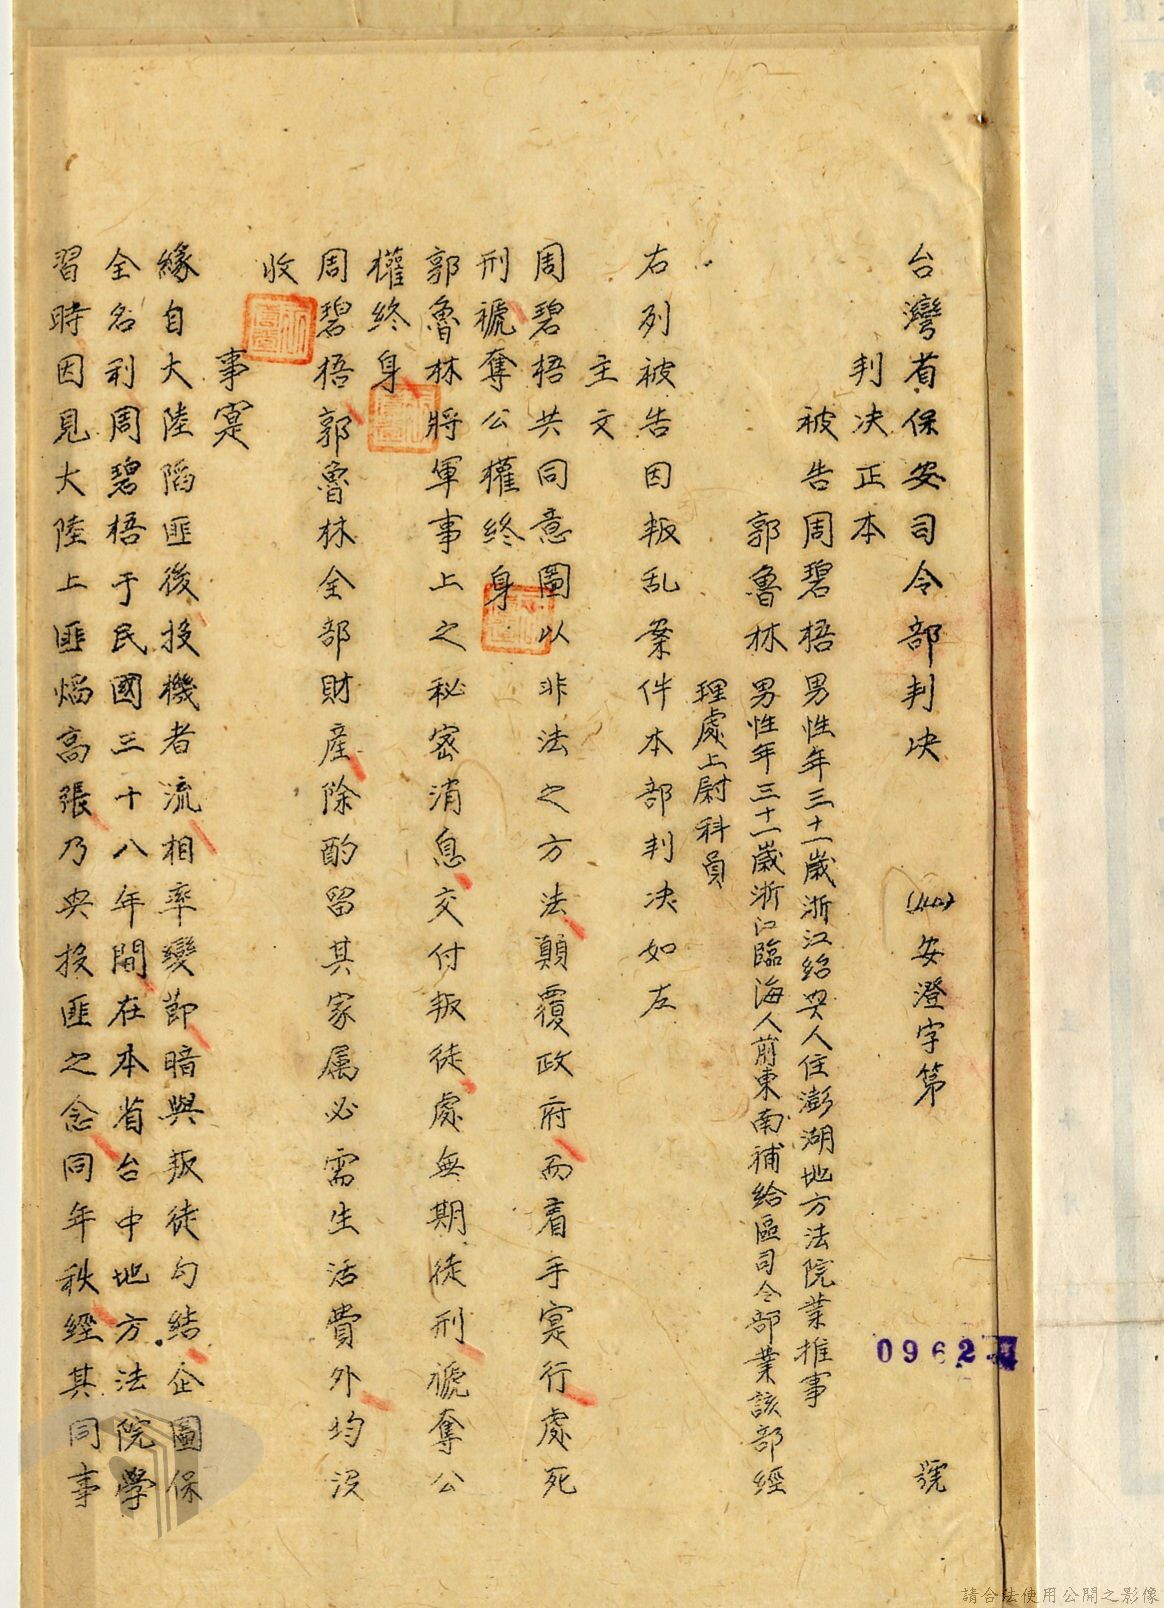 台灣省保安司令部判决 安澄字第 0962 號
判决正本
被告周碧梧男性年三十一歲浙江紹興人住澎湖地方法院業推事
郭魯林男性年三十一歲浙江臨海人前東南補給區司令部業該部經
理處上尉科員
右列被告因叛乱案件本部判决如左
主文
周碧梧共同意圖以非法之方法顛覆政府而着手寔行處死
刑褫奪公權終身
郭魯林將軍事上之秘密消息交付叛徒處無期徒刑褫奪公
權終身
周碧梧郭魯林全部財產除酌留其家属必需生活費外均没
收
事寔
緣自大陸陷匪後投機者流相率變節暗與叛徒勾結企圖保
全名利周碧梧于民國三十八年間在本省台中地方法院學
習時因見大陸上匪焰高張乃興投匪之念同年秋經其同事
請合法使用公開之影像